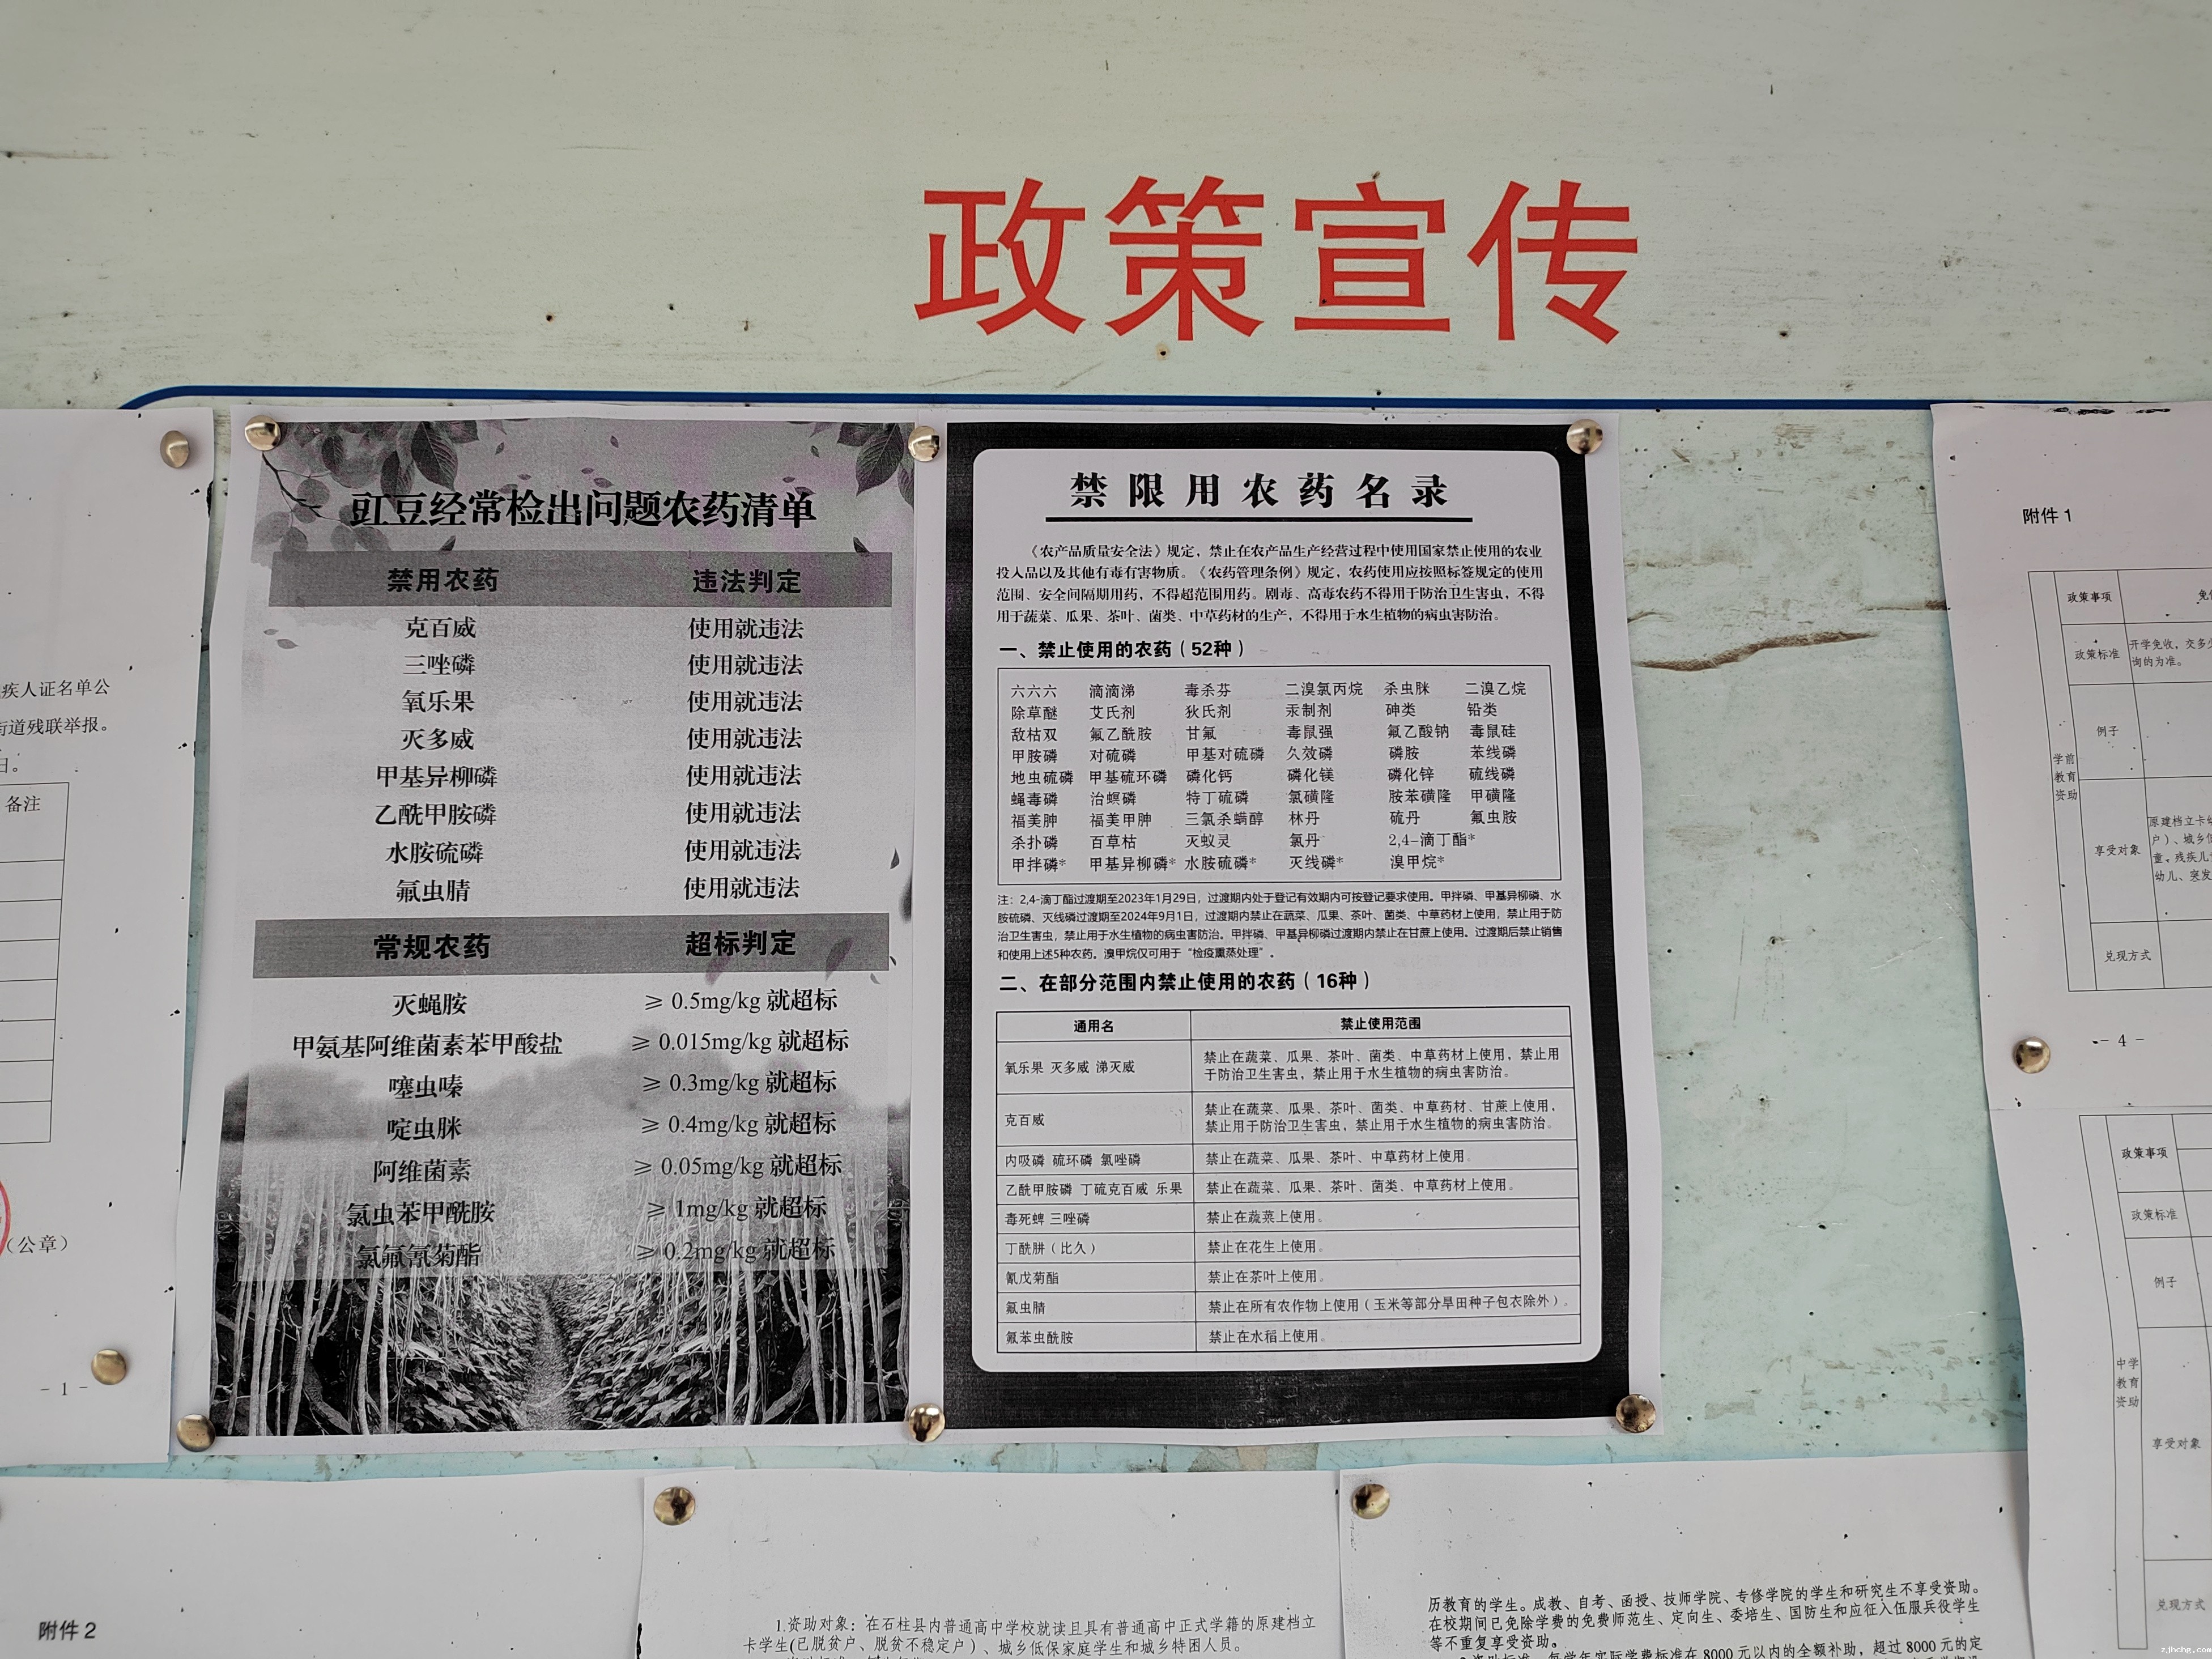 政策宣传
疾人证名单公
街道残联举报。
日。
备注
（公章）
- 1 -
豇豆经常检出问题农药清单
禁用农药 违法判定
克百威 使用就违法
三唑磷 使用就违法
氧乐果 使用就违法
灭多威 使用就违法
甲基异柳磷 使用就违法
乙酰甲胺磷 使用就违法
水胺硫磷 使用就违法
氟虫腈 使用就违法
常规农药 超标判定
灭蝇胺 ≥ 0.5mg/kg 就超标
甲氨基阿维菌素苯甲酸盐 ≥ 0.015mg/kg 就超标
噻虫嗪 ≥ 0.3mg/kg 就超标
啶虫脒 ≥ 0.4mg/kg 就超标
阿维菌素 ≥ 0.05mg/kg 就超标
氯虫苯甲酰胺 ≥ 1mg/kg 就超标
氯氟氰菊酯 ≥ 0.2mg/kg 就超标
禁限用农药名录
《农产品质量安全法》规定，禁止在农产品生产经营过程中使用国家禁止使用的农业
投入品以及其他有毒有害物质。《农药管理条例》规定，农药使用应按照标签规定的使用
范围、安全间隔期用药，不得超范围用药。剧毒、高毒农药不得用于防治卫生害虫，不得
用于蔬菜、瓜果、茶叶、菌类、中草药材的生产，不得用于水生植物的病虫害防治。
一、禁止使用的农药（52种）
六六六 滴滴涕 毒杀芬 二溴氯丙烷 杀虫脒 二溴乙烷
除草醚 艾氏剂 狄氏剂 汞制剂 砷类 铅类
敌枯双 氟乙酰胺 甘氟 毒鼠强 氟乙酸钠 毒鼠硅
甲胺磷 对硫磷 甲基对硫磷 久效磷 磷胺 苯线磷
地虫硫磷 甲基硫环磷 磷化钙 磷化镁 磷化锌 硫线磷
蝇毒磷 治螟磷 特丁硫磷 氯磺隆 胺苯磺隆 甲磺隆
福美胂 福美甲胂 三氯杀螨醇 林丹 硫丹 氟虫胺
杀扑磷 百草枯 灭蚁灵 氯丹 2,4-滴丁酯*
甲拌磷* 甲基异柳磷* 水胺硫磷* 灭线磷* 溴甲烷*
注：2,4-滴丁酯过渡期至2023年1月29日，过渡期内处于登记有效期内可按登记要求使用。甲拌磷、甲基异柳磷、水
胺硫磷、灭线磷过渡期至2024年9月1日，过渡期内禁止在蔬菜、瓜果、茶叶、菌类、中草药材上使用，禁止用于防
治卫生害虫，禁止用于水生植物的病虫害防治。甲拌磷、甲基异柳磷过渡期内禁止在甘蔗上使用。过渡期后禁止销售
和使用上述5种农药。溴甲烷仅可用于“检疫熏蒸处理”。
二、在部分范围内禁止使用的农药（16种）
通用名 禁止使用范围
氧乐果 灭多威 涕灭威 禁止在蔬菜、瓜果、茶叶、菌类、中草药材上使用，禁止用
于防治卫生害虫，禁止用于水生植物的病虫害防治。
克百威 禁止在蔬菜、瓜果、茶叶、菌类、中草药材、甘蔗上使用，
禁止用于防治卫生害虫，禁止用于水生植物的病虫害防治。
内吸磷 硫环磷 氯唑磷 禁止在蔬菜、瓜果、茶叶、中草药材上使用。
乙酰甲胺磷 丁硫克百威 乐果 禁止在蔬菜、瓜果、茶叶、菌类、中草药材上使用。
毒死蜱 三唑磷 禁止在蔬菜上使用。
丁酰肼（比久） 禁止在花生上使用。
氰戊菊酯 禁止在茶叶上使用。
氟虫腈 禁止在所有农作物上使用（玉米等部分旱田种子包衣除外）。
氟苯虫酰胺 禁止在水稻上使用。
附件 1
政策事项
政策标准 开学免收，交多
询的为准。
例子
学前
教育
资助
享受对象
原建档立卡
户）、城乡
童、残疾儿
幼儿、突发
兑现方式
- 4 -
政策事项
政策标准
例子
中学
教育
资助
享受对象
兑现方式
附件 2
1.资助对象：在石柱县内普通高中学校就读且具有普通高中正式学籍的原建档立
卡学生(已脱贫户、脱贫不稳定户）、城乡低保家庭学生和城乡特困人员。
历教育的学生。成教、自考、函授、技师学院、专修学院的学生和研究生不享受资助。
在校期间已免除学费的免费师范生、定向生、委培生、国防生和应征入伍服兵役学生
等不重复享受资助。
每学年实际学费标准在 8000 元以内的全额补助，超过 8000 元的定
zjhchg.com